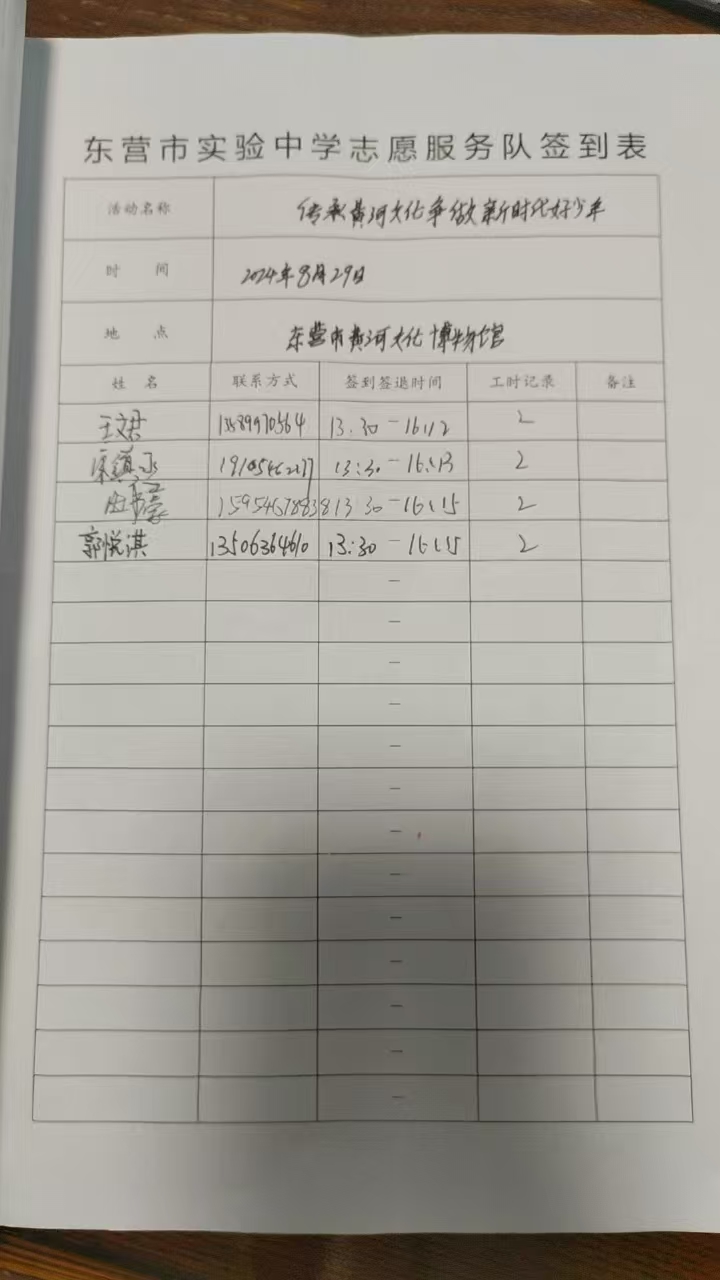 东营市实验中学志愿服务队签到表
活动名称 传承黄河文化争做新时代好少年
时 间 2024年8月29日
地 点 东营市黄河文化博物馆
姓 名 联系方式 签到签退时间 工时记录 备注
王文君 13589970564 13:30-16:12 2
13:30-16:13 2
15954678838 13 30-16:15 2
郭悦淇 13506364610 13:30-16:15 2
—
—
—
—
—
—
—
—
—
—
—
—
—